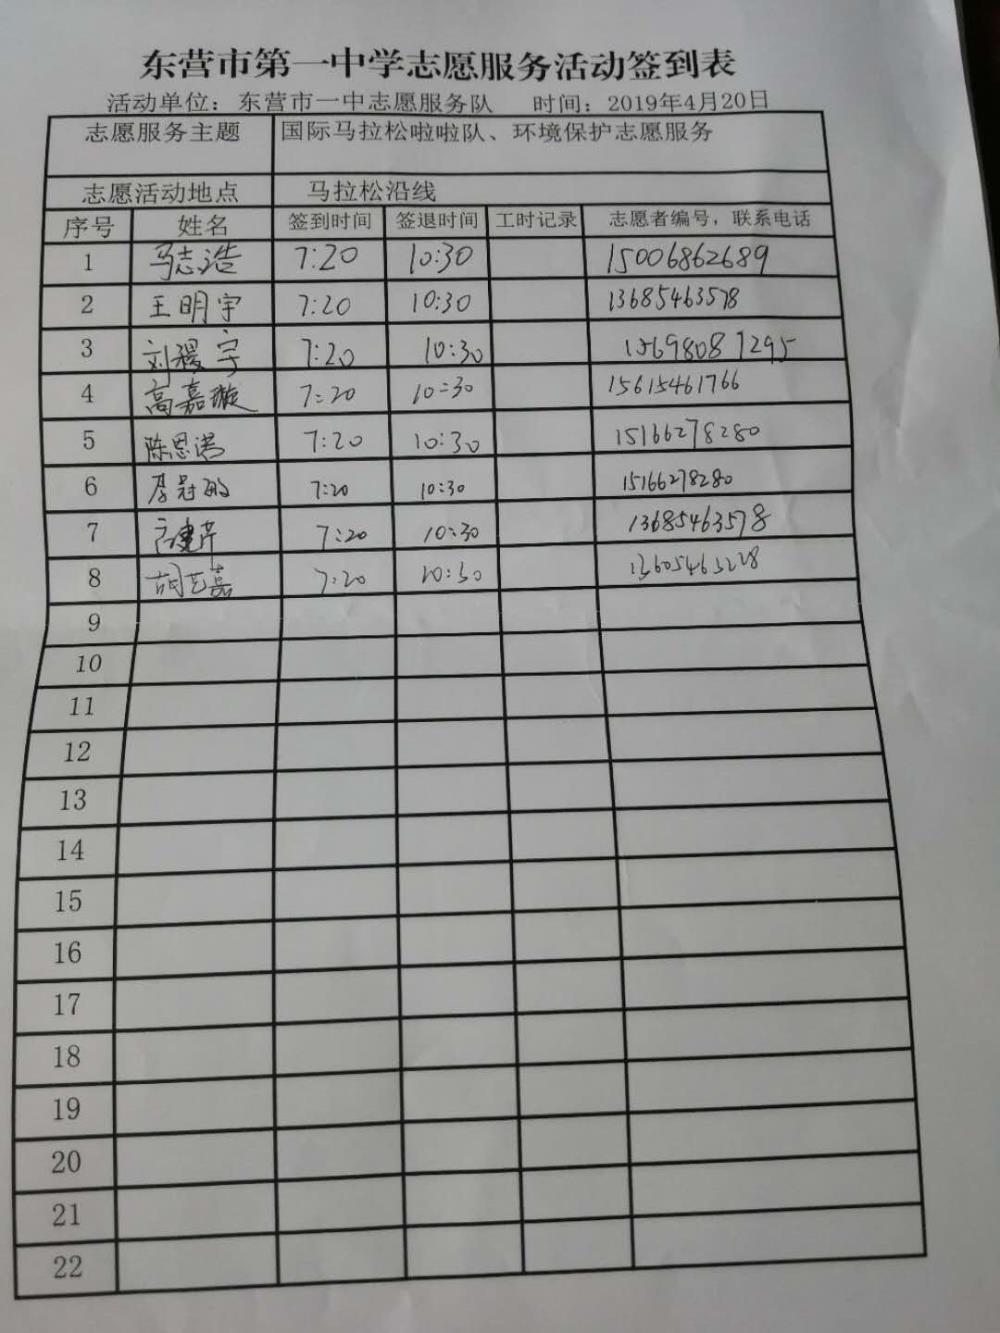 东营市第一中学志愿服务活动签到表
活动单位：东营市一中志愿服务队 时间：2019年4月20日
志愿服务主题 国际马拉松啦啦队、环境保护志愿服务
志愿活动地点 马拉松沿线
序号 姓名 签到时间 签退时间 工时记录 志愿者编号，联系电话
1 马志浩 7:20 10:30 15006862689
2 王明宇 7:20 10:30 13685463578
3 刘稷宇 7:20 10:30
4 高嘉璇 7:20 10:30 15615461766
5 陈思诺 7:20 10:30 15166278280
6 李冠 7:20 10:30 15166278280
7 7:20 10:30 13685463578
8 胡艺嘉 7:20 10:30
9
10
11
12
13
14
15
16
17
18
19
20
21
22